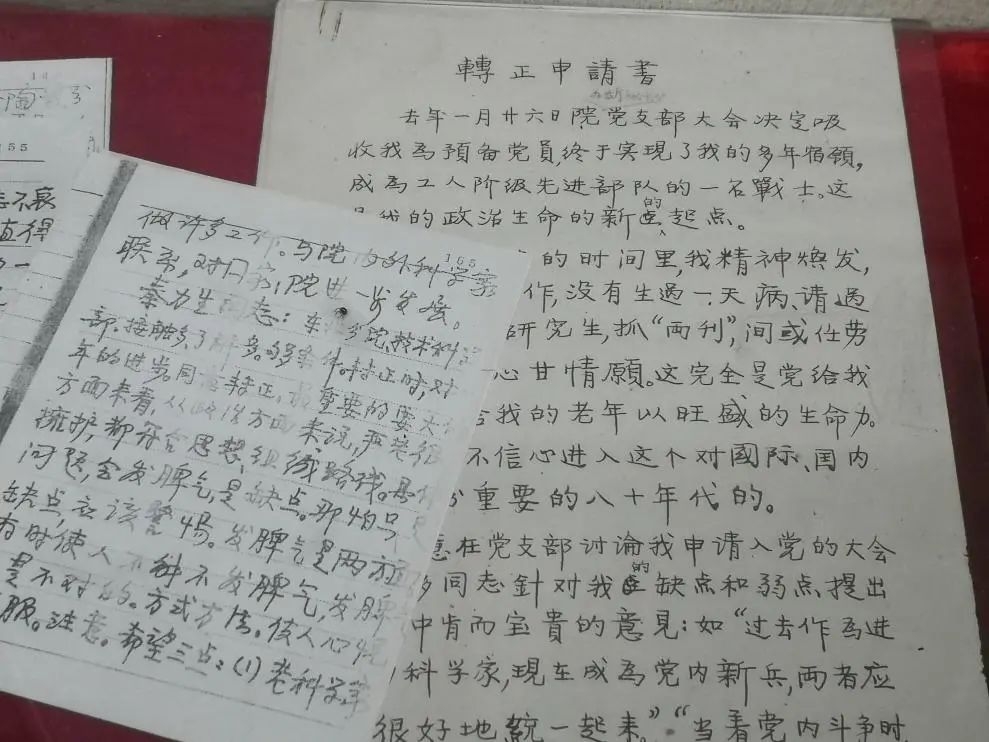 轉正申請書
去年一月廿六日院党支部大会决定吸
收我為預备党員,终于实現了我的多年宿願,
成為工人阶级先进部队的一名戰士。这
我的政治生命的新的起点。
的时间里,我精神焕发,
作,没有生過一天病、请過
研究生,抓“两刊”,间或任劳
心甘情願。这完全是党给我
我的老年以旺盛的生命力。
信心进入这个对國际、国内
重要的八十年代的。
在党支部讨論我申请入党的大会
同志針对我的缺点和弱点提出
中肯而宝貴的意見:如“过去作為进
科学家,現在成為党内新兵,两者应
很好地統一起来。”“当看党内斗争时
165
做许多工作。与院内外科学家
联系,对门户,院世一步发展。
秦力生同志:车 分院、技术科学
部,接触多,了解多。的多条件。转正时,对
年的进步。同意转正,最重要的要
方面来看,从政治方面来说,严老很
擁护,都符合思想、组織路线。
问题,会发脾气,是缺点。那怕只是
缺点,应该警惕。发脾气是两方面
有时使人不种不发脾气,发脾
是不对的。方式方法。使人心悦
服。注意。希望三点:(1)老科学家
155
忘不衰
值得
的一